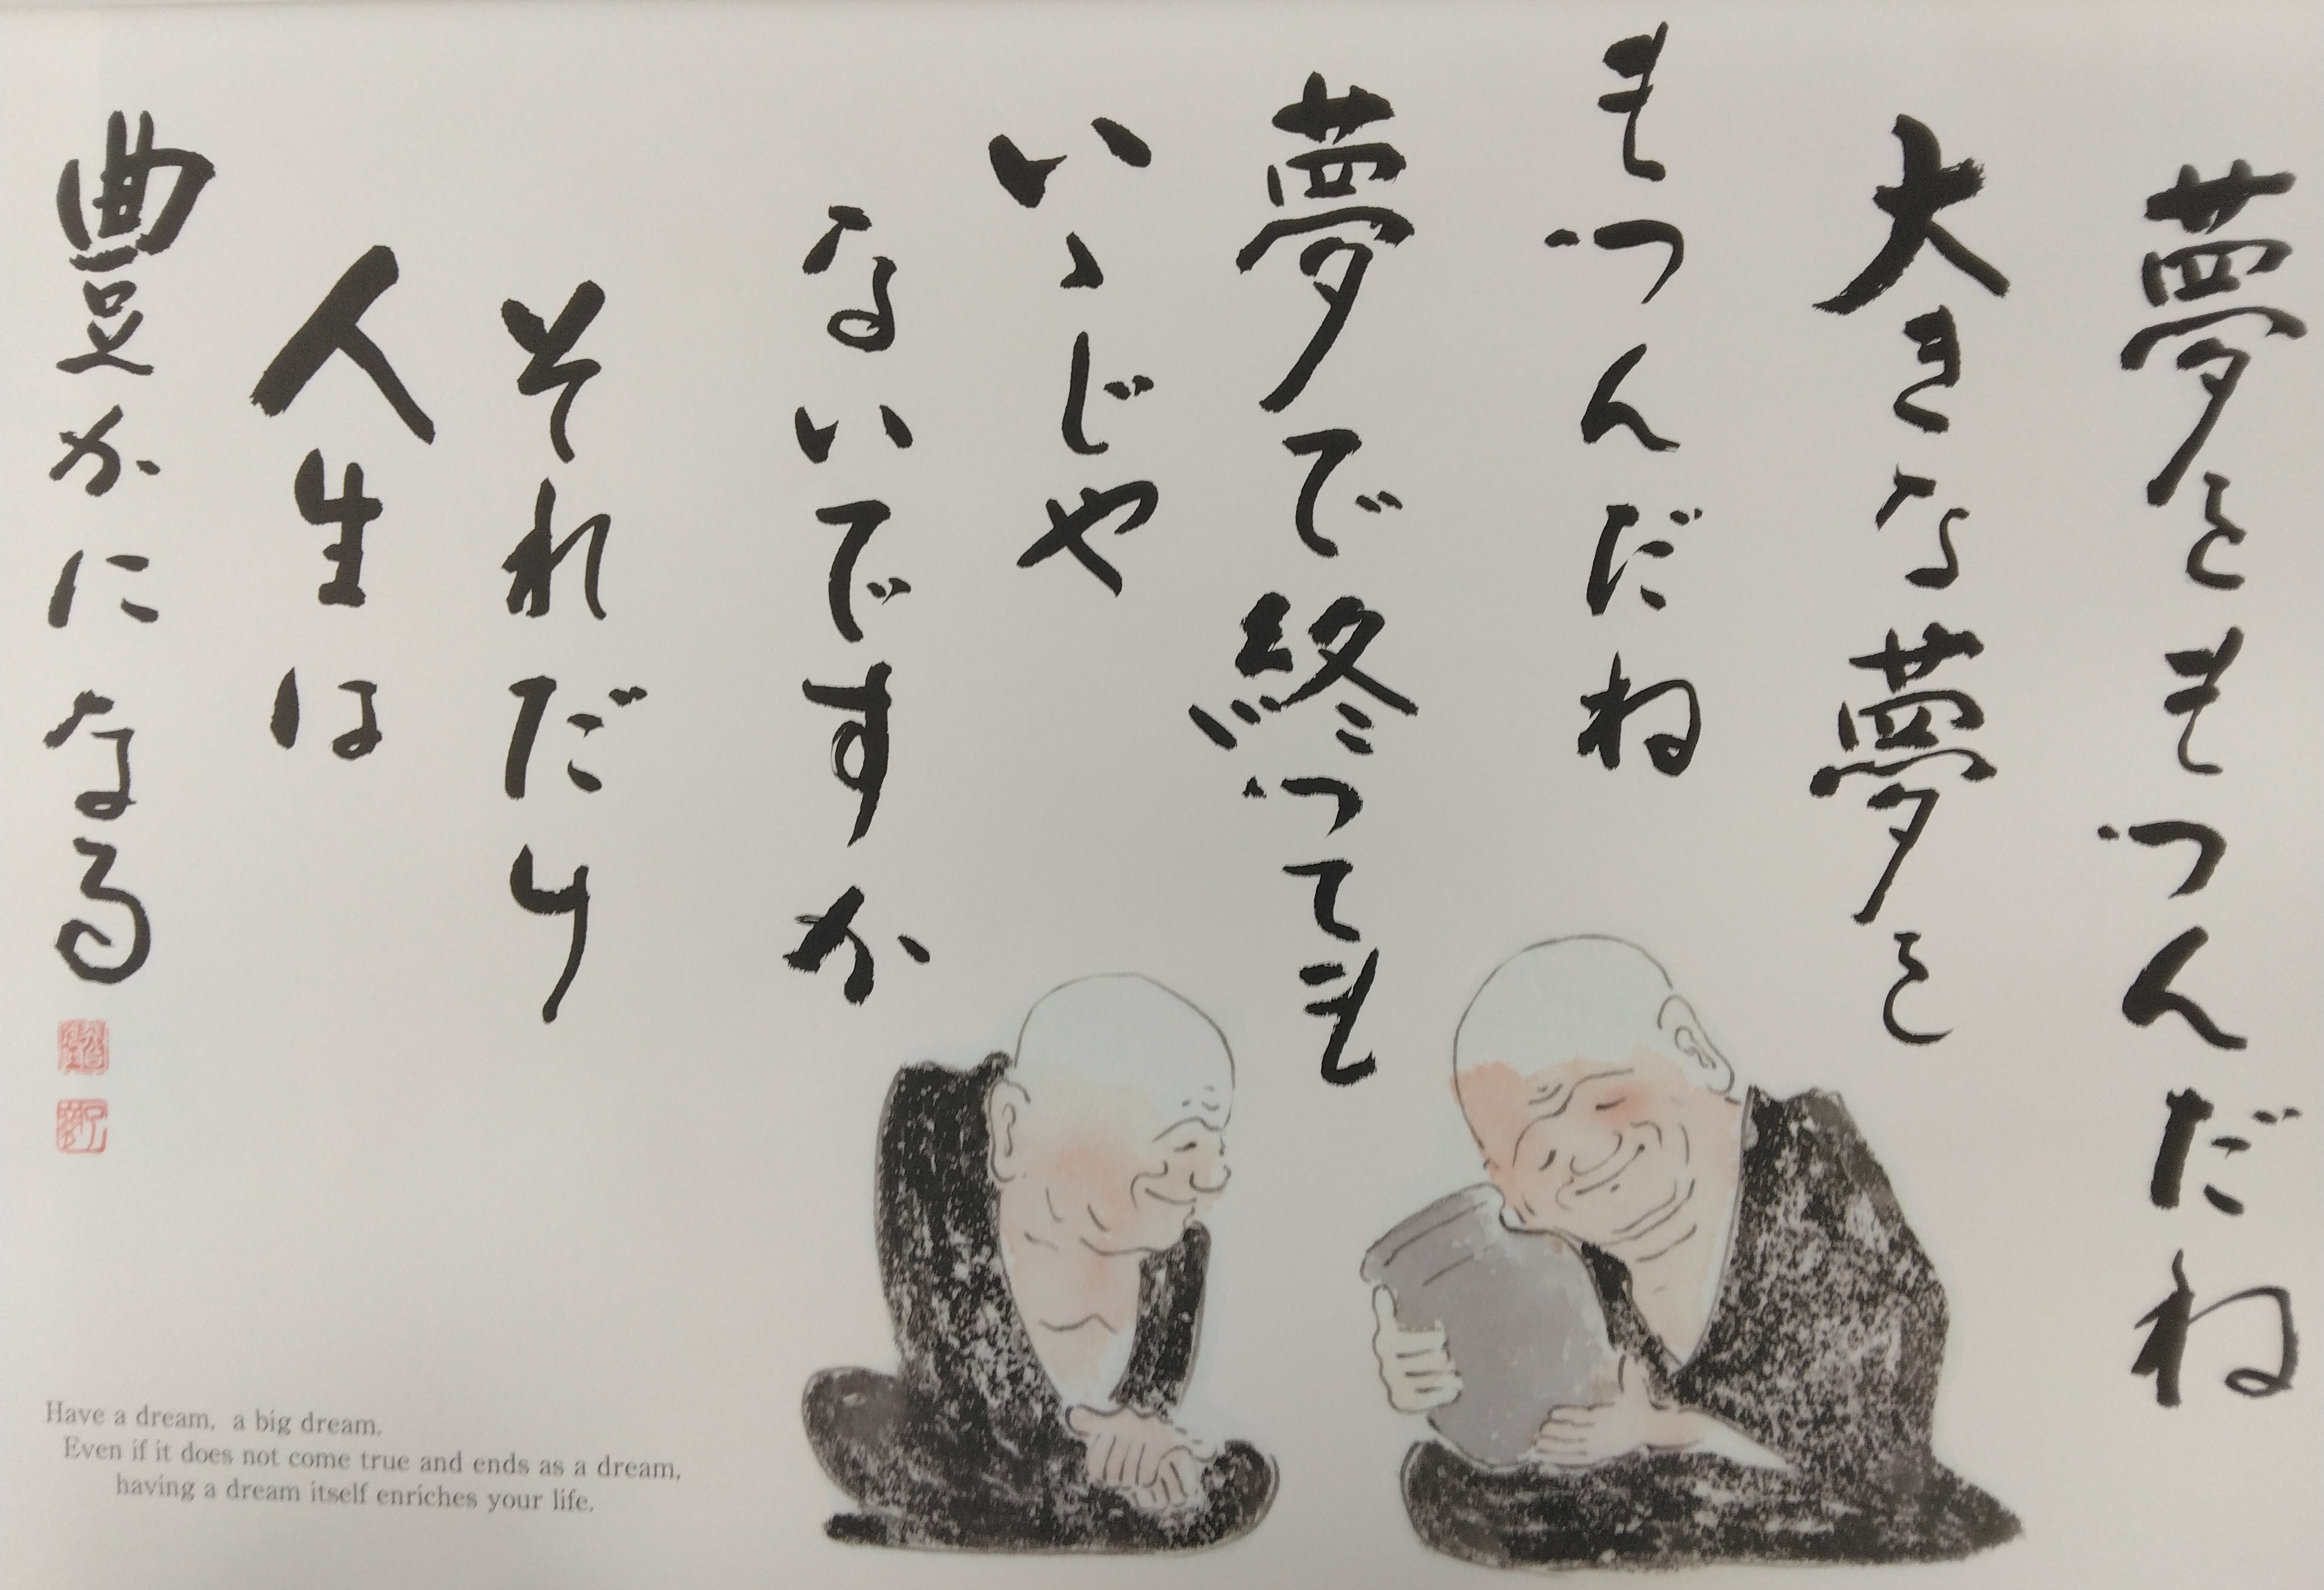 夢をもつんだね
大きな夢を
もつんだね
夢で終っても
いゝじゃ
ないですか
それだけ
人生は
豊かになる
Have a dream, a big dream.
Even if it does not come true and ends as a dream,
having a dream itself enriches your life.